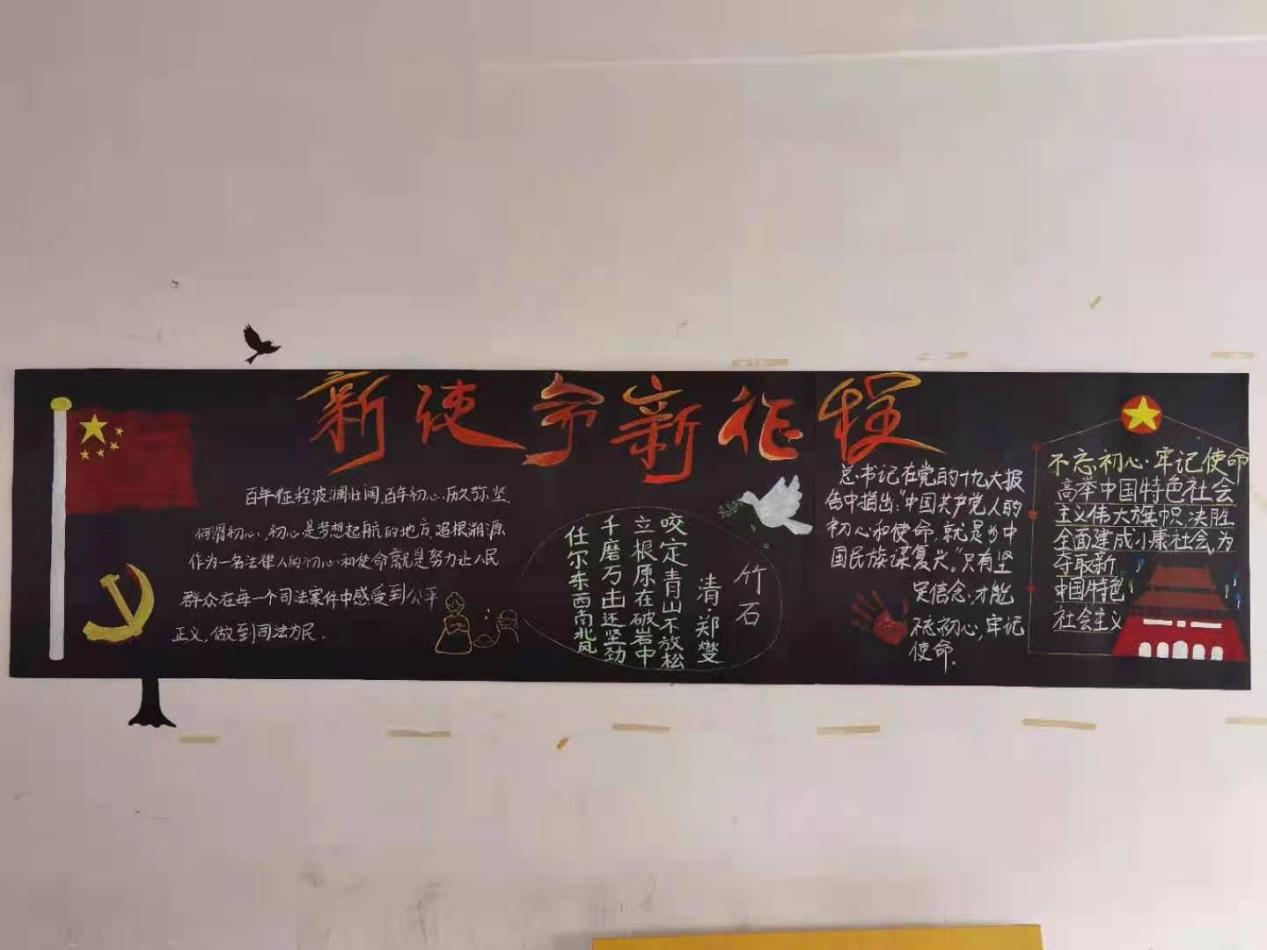 新使命新征程
百年征程波澜壮阔,百年初心历久弥坚.
何谓初心,初心是梦想起航的地方,追根溯源
作为一名法律人的初心和使命就是努力让人民
群众在每一个司法案件中感受到公平
正义,做到司法为民.
竹石
清·郑燮
咬定青山不放松
立根原在破岩中
千磨万击还坚劲
任尔东西南北风
总书记在党的十九大报
告中指出:"中国共产党人的
初心和使命,就是为中
国民族谋复兴。"只有坚
定信念,才能
不忘初心,牢记
使命.
不忘初心·牢记使命
高举中国特色社会
主义伟大旗帜,决胜
全面建成小康社会,为
夺取新
中国特色
社会主义